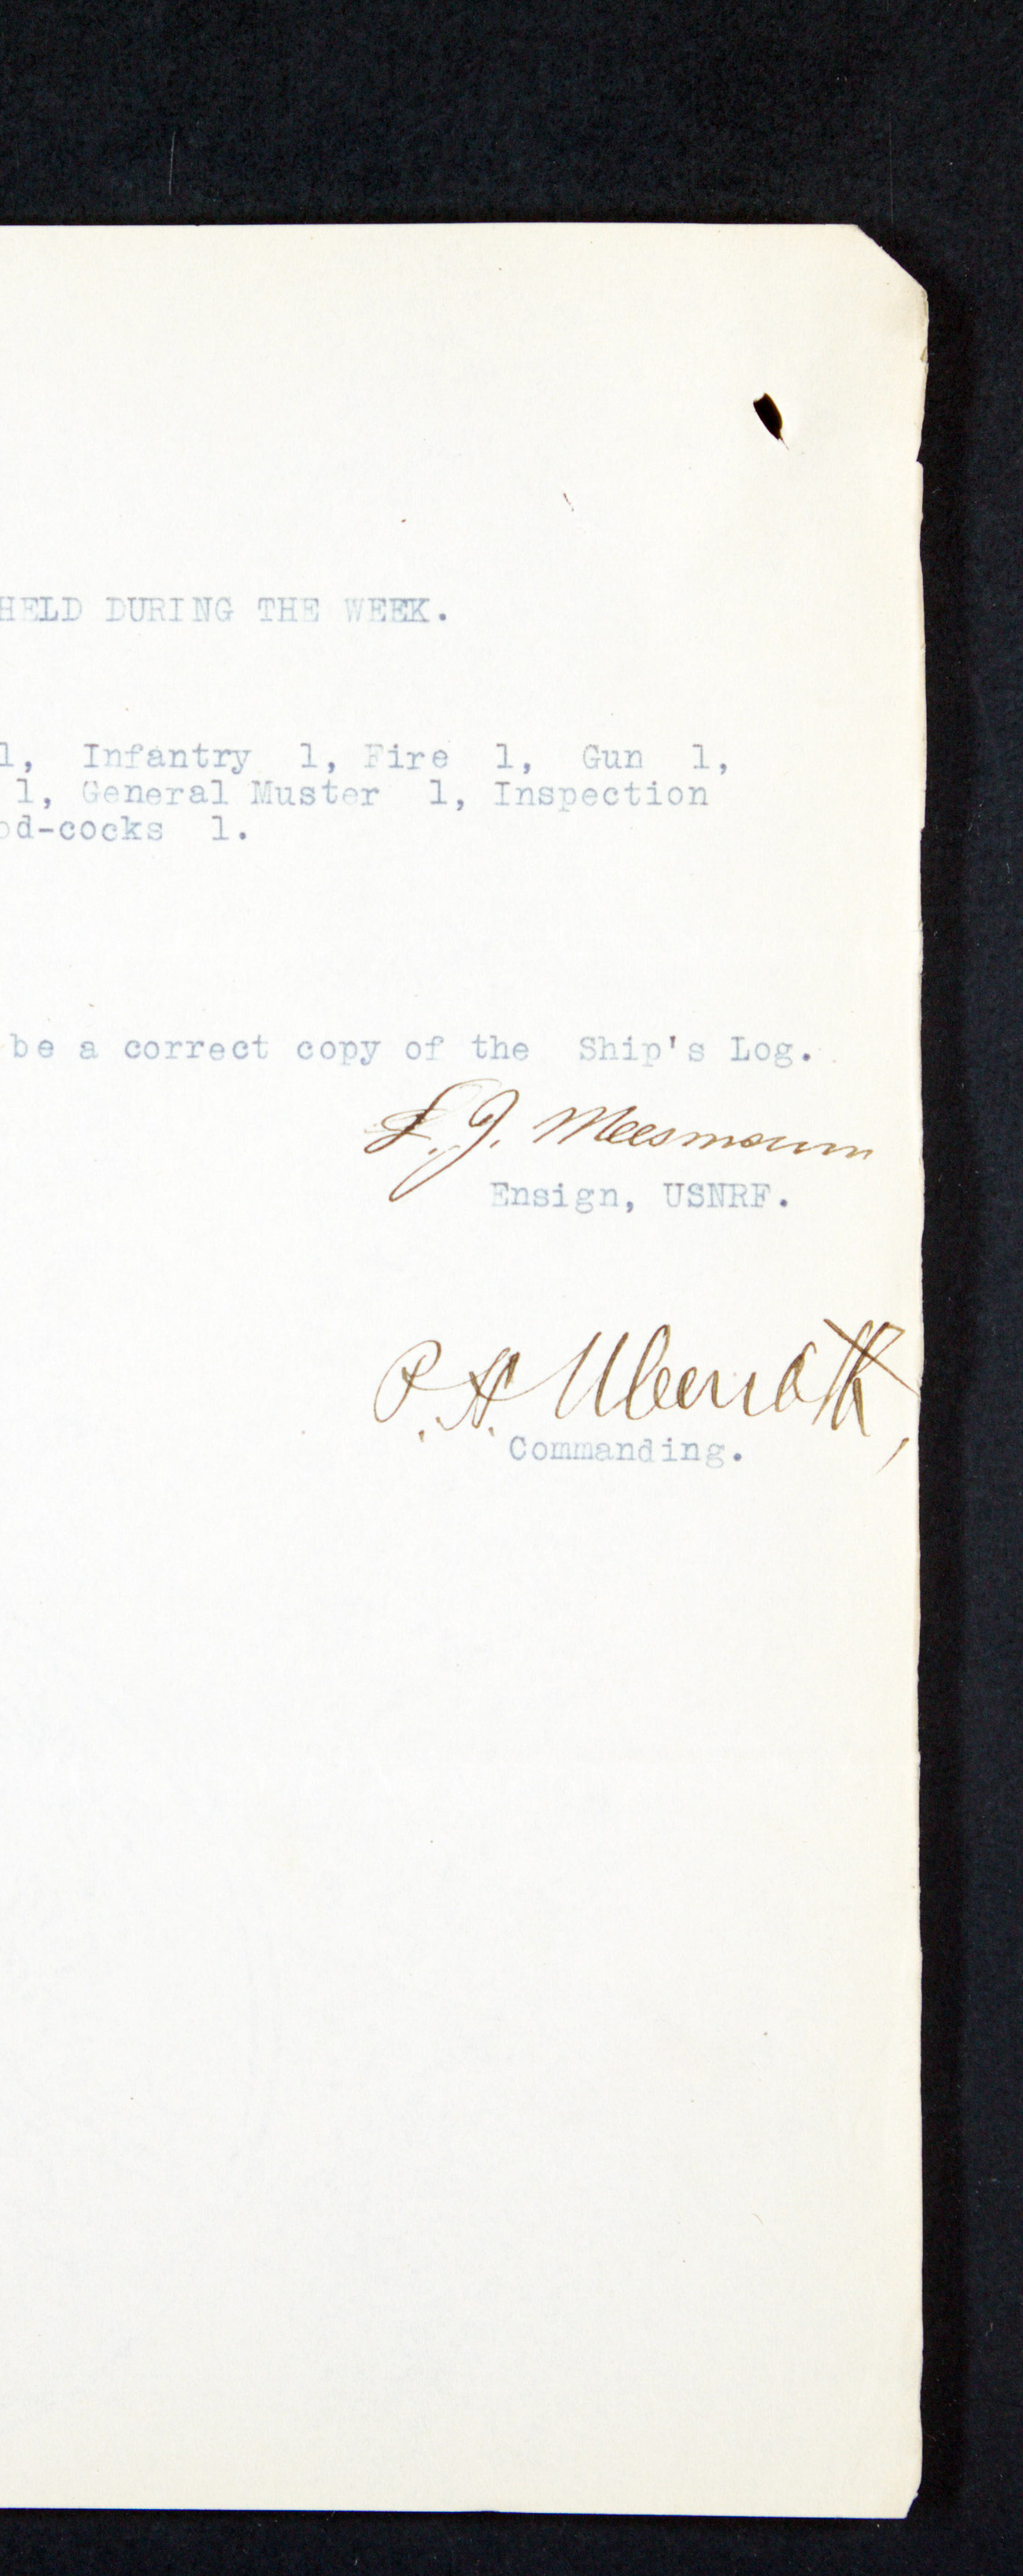 HELD DURING THE WEEK.
1, Infantry 1, Fire 1, Gun 1,
1, General Muster 1, Inspection
od-cocks 1.
be a correct copy of the Ship's Log.
L. J.
Ensign, USNRF.
P. H. Uberroth,
Commanding.